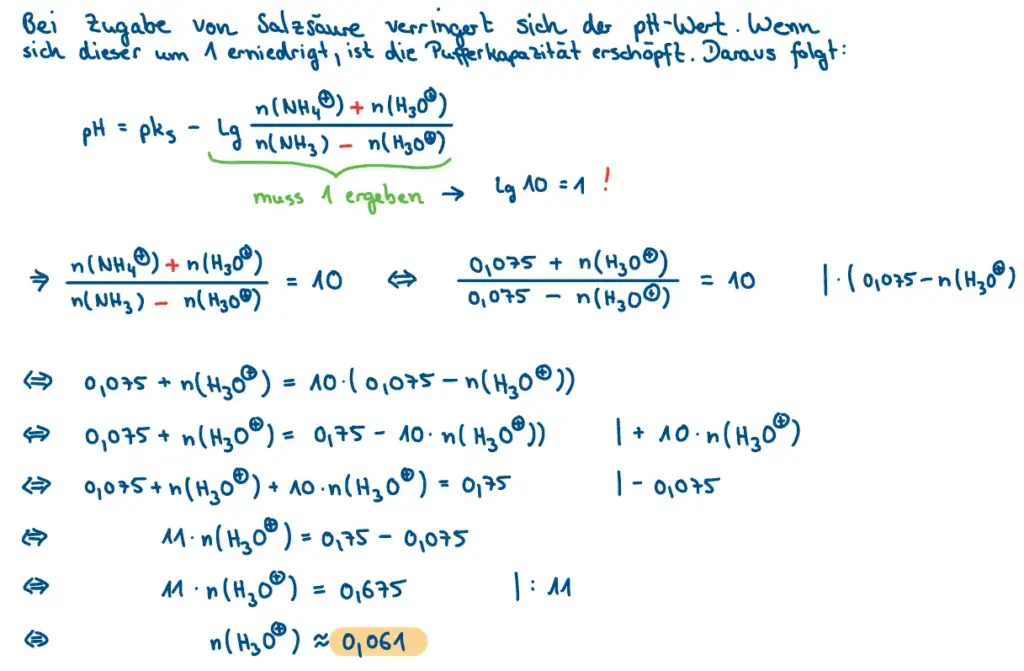 Bei Zugabe von Salzsäure verringert sich der pH-Wert. Wenn
sich dieser um 1 erniedrigt, ist die Pufferkapazität erschöpft. Daraus folgt:
pH = pks - lg (n(NH₄⊕) + n(H₃O⊕)) / (n(NH₃) - n(H₃O⊕))
muss 1 ergeben → lg 10 = 1 !
⇒ (n(NH₄⊕) + n(H₃O⊕)) / (n(NH₃) - n(H₃O⊕)) = 10 ⇔ (0,075 + n(H₃O⊕)) / (0,075 - n(H₃O⊕)) = 10 | · (0,075 - n(H₃O⊕)
⇔ 0,075 + n(H₃O⊕) = 10 · (0,075 - n(H₃O⊕))
⇔ 0,075 + n(H₃O⊕) = 0,75 - 10 · n(H₃O⊕)) | + 10 · n(H₃O⊕)
⇔ 0,075 + n(H₃O⊕) + 10 · n(H₃O⊕) = 0,75 | - 0,075
⇔ 11 · n(H₃O⊕) = 0,75 - 0,075
⇔ 11 · n(H₃O⊕) = 0,675 | : 11
⇔ n(H₃O⊕) ≈ 0,061